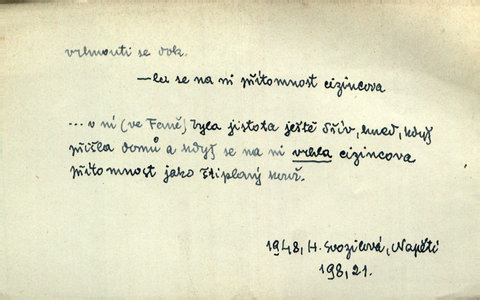 vrhnouti se dok.
—la se na ni přítomnost cizincova
... v ní (ve Feně) byla jistota ještě dřív, hned, když
přišla domů a když se na ni vrhla cizincova
přítomnost jako štiplavý kouř.
1948, H. Svozilová, Napětí
198, 21.